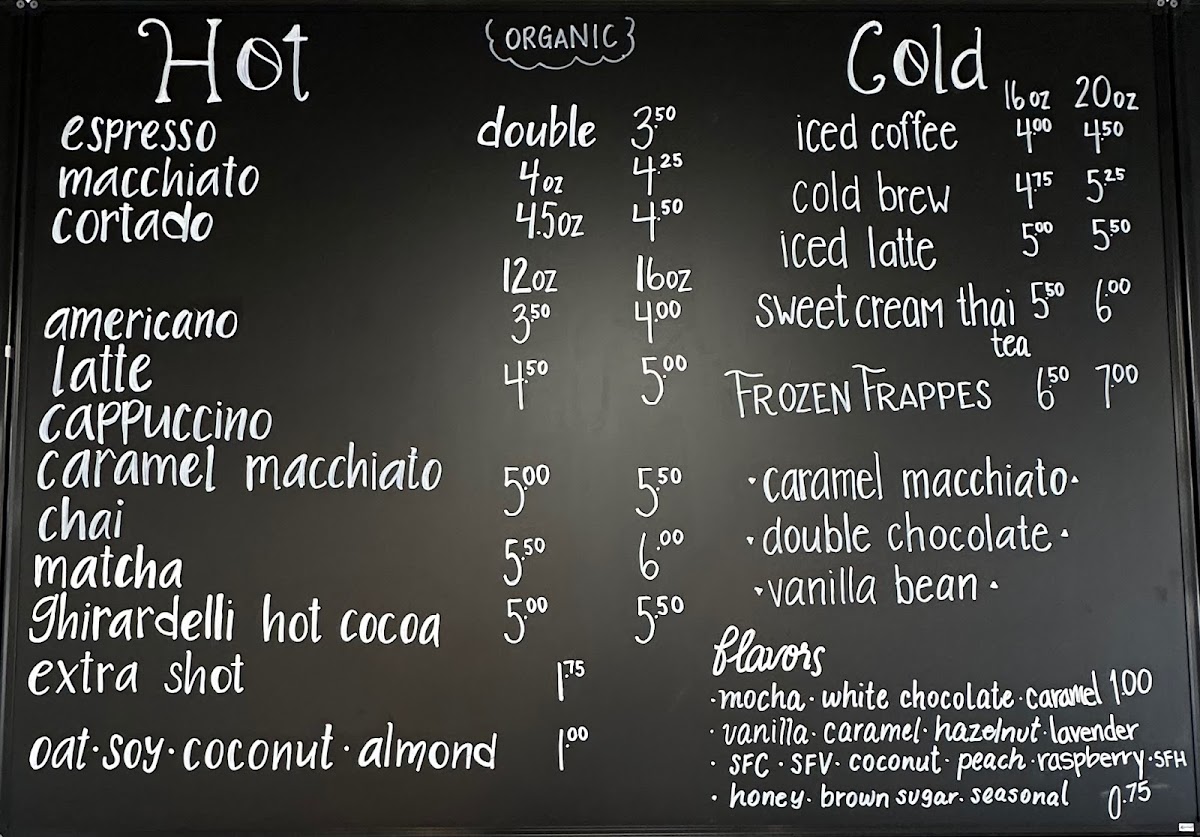 Hot
ORGANIC
espresso double 3.50
macchiato 4oz 4.25
cortado 4.5oz 4.50
12oz 16oz
americano 3.50 4.00
latte 4.50 5.00
cappuccino
caramel macchiato 5.00 5.50
chai
matcha 5.50 6.00
ghirardelli hot cocoa 5.00 5.50
extra shot 1.75
oat · soy · coconut · almond 1.00
Cold
16oz 20oz
iced coffee 4.00 4.50
cold brew 4.75 5.25
iced latte 5.00 5.50
sweet cream thai 5.50 6.00
tea
FROZEN FRAPPES 6.50 7.00
· caramel macchiato ·
· double chocolate ·
· vanilla bean ·
flavors
· mocha · white chocolate · caramel 1.00
· vanilla · caramel · hazelnut · lavender
· SFC · SFV · coconut · peach · raspberry · SFH
· honey · brown sugar · seasonal 0.75